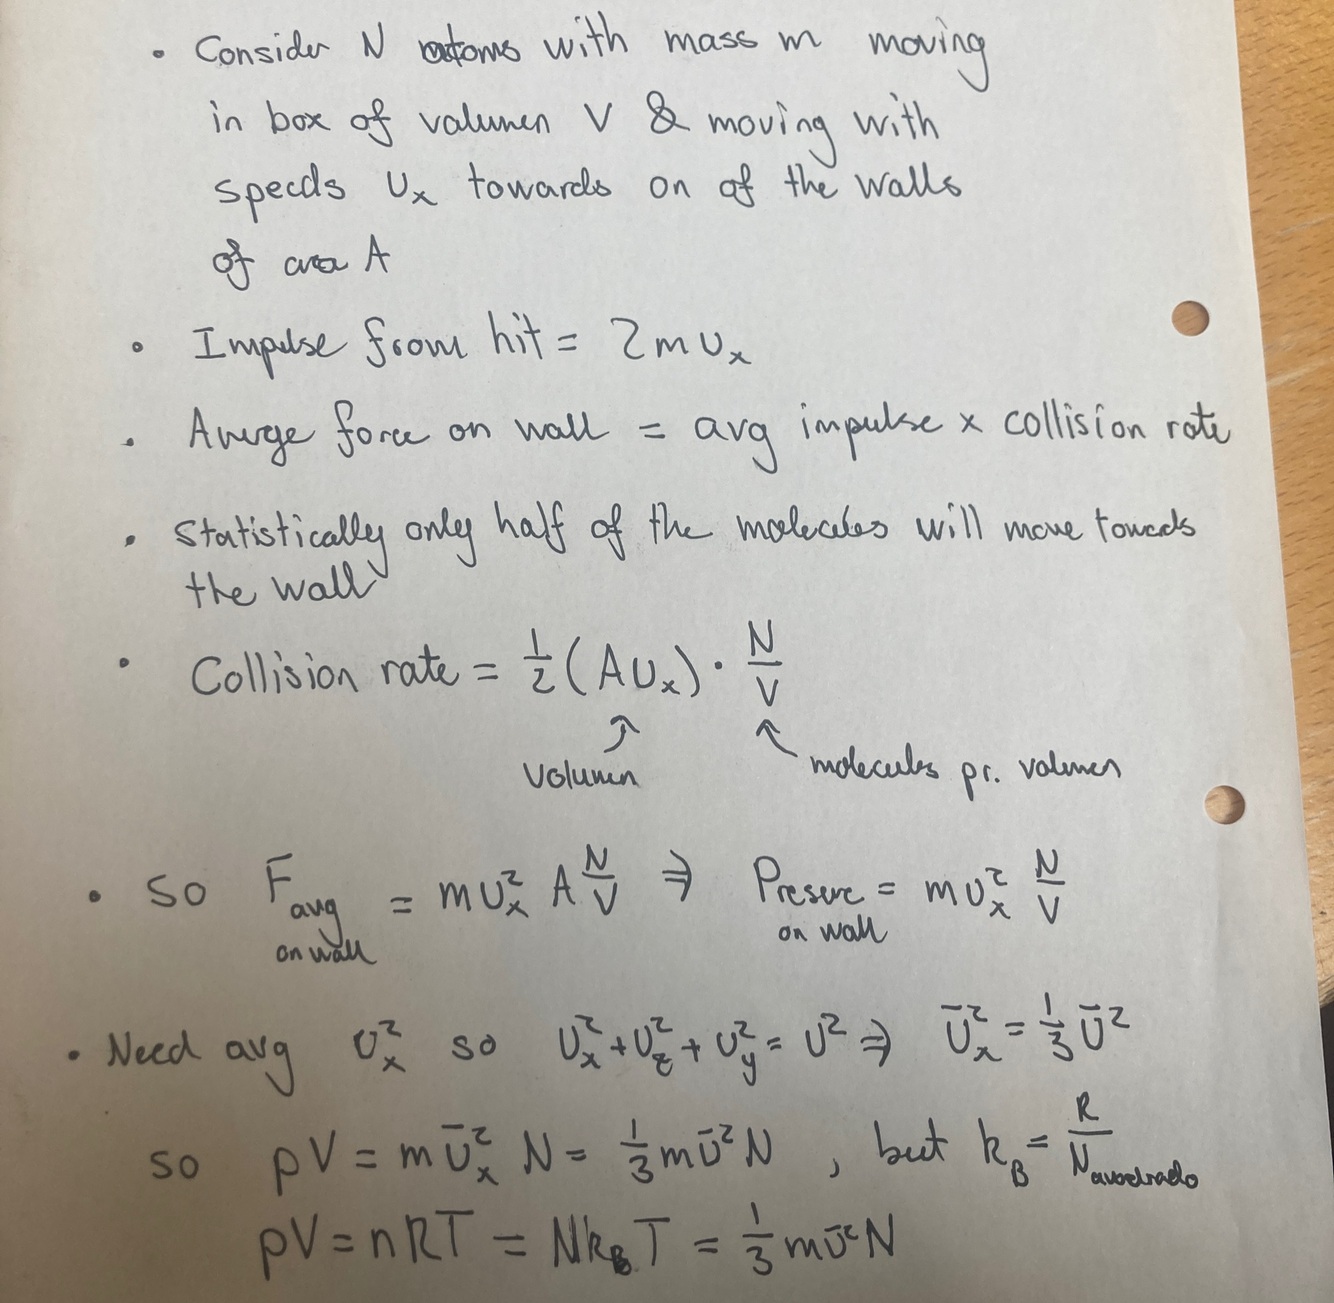 • Consider N atoms with mass m moving
in box of valumen V & moving with
speeds υₓ towards on of the walls
of area A
• Impulse from hit = 2mυₓ
• Average force on wall = avg impulse × collision rate
• Statistically only half of the molecules will move towards
the wall
• Collision rate = ½(Aυₓ) · N/V
volumen
molecules pr. volumen
• So F avg on wall = mυₓ² A N/V ⇒ Presure on wall = mυₓ² N/V
• Need avg υₓ² so υₓ² + υ_z² + υ_y² = υ² ⇒ ῡₓ² = ⅓ ῡ²
so pV = mῡₓ² N = ⅓ mῡ² N , but k_B = R/N avodrado
pV = nRT = Nk_BT = ⅓ mῡ²N